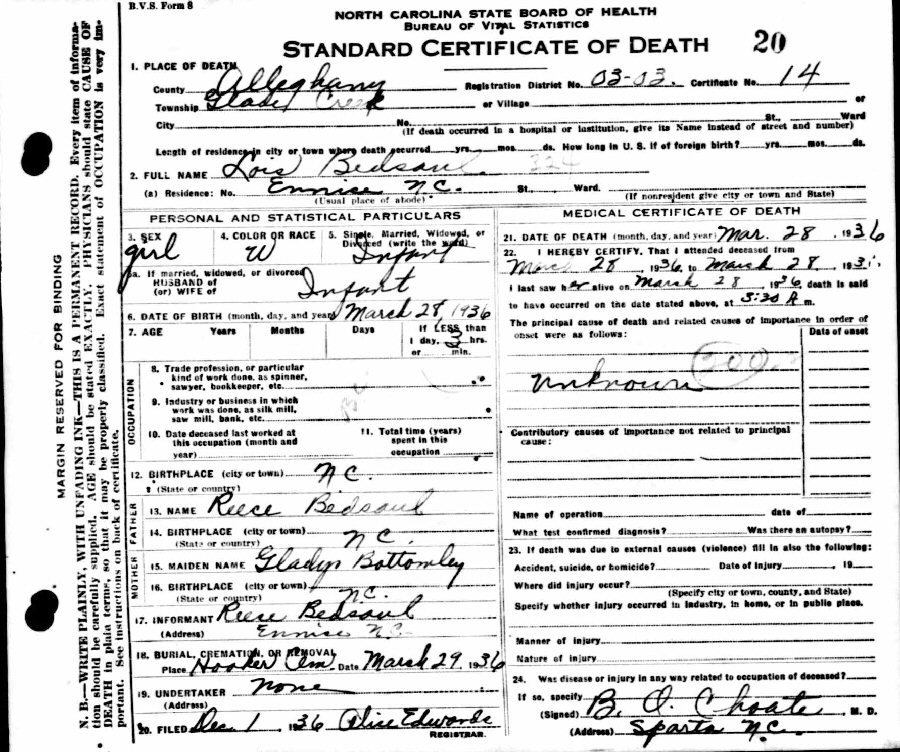 B.V.S. Form 8
NORTH CAROLINA STATE BOARD OF HEALTH
BUREAU OF VITAL STATISTICS
STANDARD CERTIFICATE OF DEATH 20
MARGIN RESERVED FOR BINDING
N. B.—WRITE PLAINLY, WITH UNFADING INK—THIS IS A PERMANENT RECORD. Every item of informa-
tion should be carefully supplied. AGE should be stated EXACTLY. PHYSICIANS should state CAUSE OF
DEATH in plain terms, so that it may be properly classified. Exact statement of OCCUPATION is very im-
portant. See instructions on back of certificate.
1. PLACE OF DEATH
County Alleghany Registration District No. 03-03. Certificate No. 14
Township Glade Creek or Village or
City No. St., Ward
(If death occurred in a hospital or institution, give its Name instead of street and number)
Length of residence in city or town where death occurred yrs. mos. ds. How long in U. S. if of foreign birth? yrs. mos. ds.
2. FULL NAME Lois Bedsaul 324
(a) Residence: No. Ennice N.C. St., Ward.
(Usual place of abode) (If nonresident give city or town and State)
PERSONAL AND STATISTICAL PARTICULARS
3. SEX 4. COLOR OR RACE 5. Single, Married, Widowed, or
Divorced (write the word)
girl W Infant
5a. If married, widowed, or divorced
HUSBAND of
(or) WIFE of Infant
6. DATE OF BIRTH (month, day, and year) March 28, 1936
7. AGE Years Months Days If LESS than
1 day, 3 hrs.
or min.
OCCUPATION
8. Trade profession, or particular
kind of work done, as spinner,
sawyer, bookkeeper, etc.
9. Industry or business in which
work was done, as silk mill,
saw mill, bank, etc.
10. Date deceased last worked at
this occupation (month and
year)
11. Total time (years)
spent in this
occupation
12. BIRTHPLACE (city or town) N.C.
(State or country)
FATHER
13. NAME Reece Bedsaul
14. BIRTHPLACE (city or town)
(State or country) N.C.
MOTHER
15. MAIDEN NAME Gladys Bottomley
16. BIRTHPLACE (city or town)
(State or country) N.C.
17. INFORMANT Reece Bedsaul
(Address) Ennice N.C.
18. BURIAL, CREMATION, OR REMOVAL
Place Hooker Cem Date March 29, 1936
19. UNDERTAKER None
(Address)
20. FILED Dec 1 1936 Alice Edwards
REGISTRAR.
MEDICAL CERTIFICATE OF DEATH
21. DATE OF DEATH (month, day, and year) Mar. 28, 1936
22. I HEREBY CERTIFY, That I attended deceased from
Mar 28, 1936 to March 28, 193
I last saw her alive on March 28, 1936, death is said
to have occurred on the date stated above, at 3:30 A m.
The principal cause of death and related causes of importance in order of
onset were as follows: Date of onset
200
Unknown
Contributory causes of importance not related to principal
cause:
Name of operation date of
What test confirmed diagnosis? Was there an autopsy?
23. If death was due to external causes (violence) fill in also the following:
Accident, suicide, or homicide? Date of Injury 19
Where did injury occur?
(Specify city or town, county, and State)
Specify whether injury occurred in industry, in home, or in public place.
Manner of injury
Nature of injury
24. Was disease or injury in any way related to occupation of deceased?
If so, specify
(Signed) B. O. Choate, M. D.
(Address) Sparta N.C.